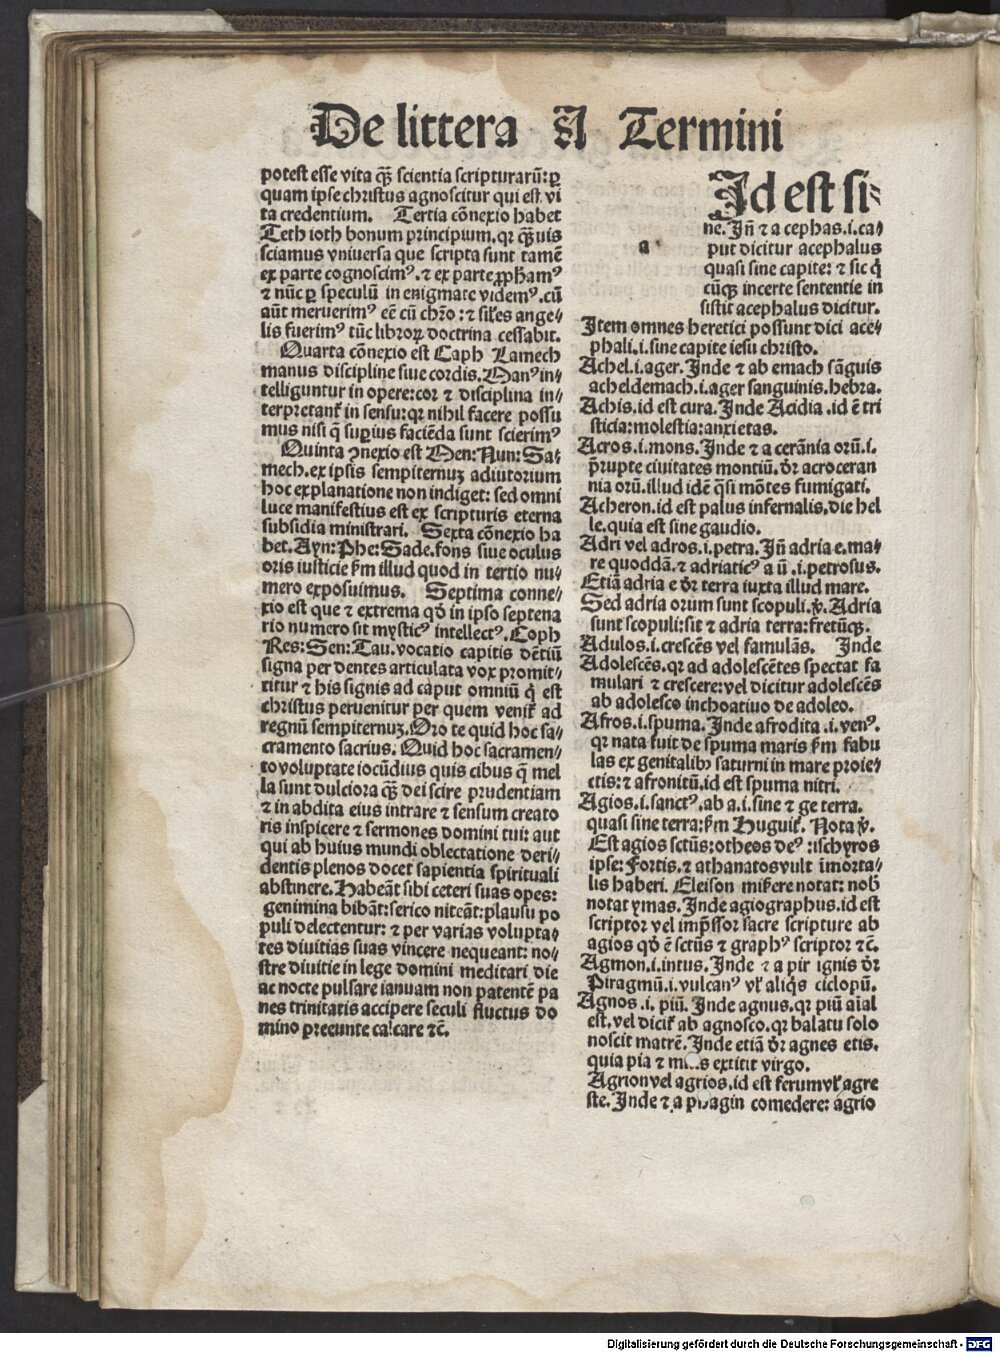 De littera A Termini
potest esse vita qȝ̃ scientia scripturarū: ꝑ
quam ipse christus agnoscitur qui est vi
ta credentium. Tertia cōnexio habet
Teth ioth bonum principium. qꝛ qȝ̃uis
sciamus vniuersa que scripta sunt tamē
ex parte cognoscimꝰ. ⁊ ex parte ꝓphamꝰ
⁊ nūc ꝑ speculū in enigmate videmꝰ. cū
aūt meruerimꝰ eē cū chr̄o: ⁊ sil̃es ange⸗
lis fuerimꝰ tūc libroꝝ doctrina cessabit.
Quarta cōnexio est Caph Lamech
manus discipline siue cordis. Manꝰ in⸗
telliguntur in opere: cor ⁊ disciplina in⸗
terpretant᷑ in sensu: qꝛ nihil facere possu
mus nisi q̄ suꝑius faciēda sunt scierimꝰ
Quinta ꝯnexio est Men: Nun: Sa⸗
mech. ex ipsis sempiternuȝ adiutorium
hoc explanatione non indiget: sed omni
luce manifestius est ex scripturis eterna
subsidia ministrari. Sexta cōnexio ha
bet. Ayn: Phe: Sade. fons siue oculus
oris iusticie ẜm illud quod in tertio nu⸗
mero exposuimus. Septima conne⸗
xio est que ⁊ extrema qð in ipso septena
rio numero sit mysticꝰ intellectꝰ. Coph
Res: Sen: Tau. vocatio capitis dētiū
signa per dentes articulata vox promit⸗
titur ⁊ his signis ad caput omniū q̇ est
christus peruenitur per quem venit᷑ ad
regnū sempiternuȝ. Oro te quid hoc sa⸗
cramento sacrius. Quid hoc sacramen⸗
to voluptate iocūdius quis cibus q̄ mel
la sunt dulciora qȝ̃ dei scire prudentiam
⁊ in abdita eius intrare ⁊ sensum creato
ris inspicere ⁊ sermones domini tui: aut
qui ab huius mundi oblectatione deri⸗
dentis plenos docet sapientia spirituali
abstinere. Habeāt sibi ceteri suas opes:
genimina bibāt: serico niteāt: plausu po
puli delectentur: ⁊ per varias volupta⸗
tes diuitias suas vincere nequeant: no⸗
stre diuitie in lege domini meditari die
ac nocte pulsare ianuam non patentē pa
nes trinitatis accipere seculi fluctus do
mino preeunte calcare ⁊c̄.
a
Id est si⸗
ne. Iñ ⁊ a cephas. i. ca⸗
put dicitur acephalus
quasi sine capite: ⁊ sic q̇
cūqȝ incerte sententie in
sistit acephalus dicitur.
Item omnes heretici possunt dici ace⸗
phali. i. sine capite iesu christo.
Achel. i. ager. Inde ⁊ ab emach sāguis
acheldemach. i. ager sanguinis. hebra.
Achis. id est cura. Inde Acidia . id ē tri
sticia: molestia: anxietas.
Acros. i. mons. Inde ⁊ a cerānia orū. i.
p̄rupte ciuitates montiū. dr̄ acroceran
nia orū. illud idē q̄si mōtes fumigati.
Acheron. id est palus infernalis, die hel
le. quia est sine gaudio.
Adri vel adros. i. petra. Iñ adria e. ma⸗
re quoddā. ⁊ adriaticꝰ a ū . i. petrosus.
Etiā adria e dr̄ terra iuxta illud mare.
Sed adria orum sunt scopuli. ꝟ. Adria
sunt scopuli: sit ⁊ adria terra: fretūqȝ.
Adulos. i. crescēs vel famulās. Inde
Adolescēs. qꝛ ad adolescētes spectat fa
mulari ⁊ crescere: vel dicitur adolescēs
ab adolesco inchoatiuo de adoleo.
Afros. i. spuma. Inde afrodita . i. venꝰ.
qꝛ nata fuit de spuma maris ẜm fabu
las ex genitalibꝰ saturni in mare proie⸗
ctis: ⁊ afronitū. id est spuma nitri.
Agios. i. sanctꝰ. ab a. i. sine ⁊ ge terra.
quasi sine terra: ẜm Huguit᷑. Nota ꝟ.
Est agios sctūs: otheos deꝰ : ischyros
ipse: Fortis. ⁊ athanatos vult īmorta⸗
lis haberi. Eleison miẜere notat: nob̄
notat ymas. Inde agiographus. id est
scriptor vel imp̄ssor sacre scripture ab
agios qð ē sctūs ⁊ graphꝰ scriptor ⁊c̄.
Agmon. i. intus. Inde ⁊ a pir ignis dr̄
Piragmū. i. vulcanꝰ vl̕ aliqs ciclopū.
Agnos. i. piū. Inde agnus. qꝛ piū aīal
est. vel dicit᷑ ab agnosco. qꝛ balatu solo
noscit matrē. Inde etiā dr̄ agnes etis.
quia pia ⁊ m..s extitit virgo.
Agrion vel agrios. id est ferum vl̕ agre
ste. Inde ⁊ a phagin comedere: agrio
Digitalisierung gefördert durch die Deutsche Forschungsgemeinschaft - DFG